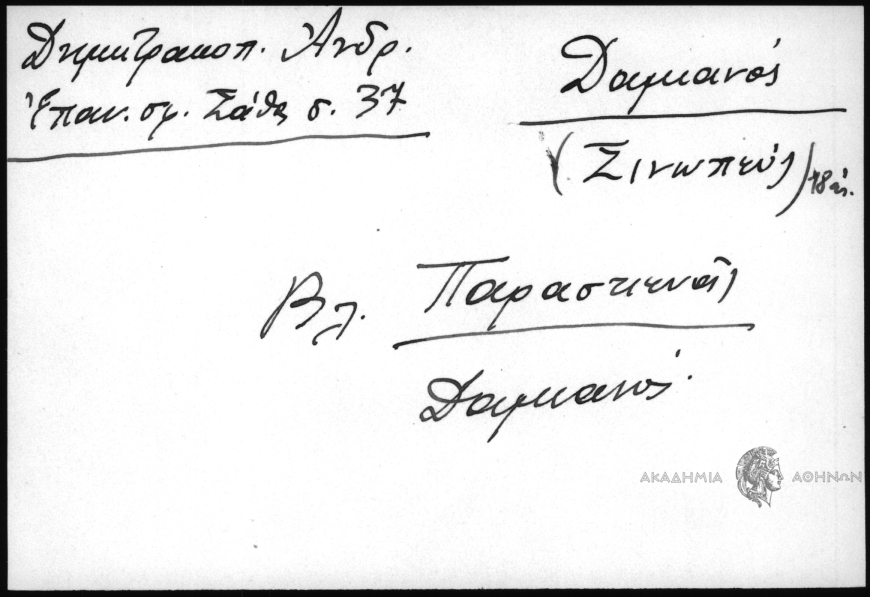 Δημητρακοπ. Ἀνδρ.
Ἐπαν. σφ. Σάθα σ. 37
Δαμιανός
(Σινωπεύς) 18 αἰ.
Βλ. Παρασκευᾶς
Δαμιανός.
ΑΚΑΔΗΜΙΑ ΑΘΗΝΩΝ